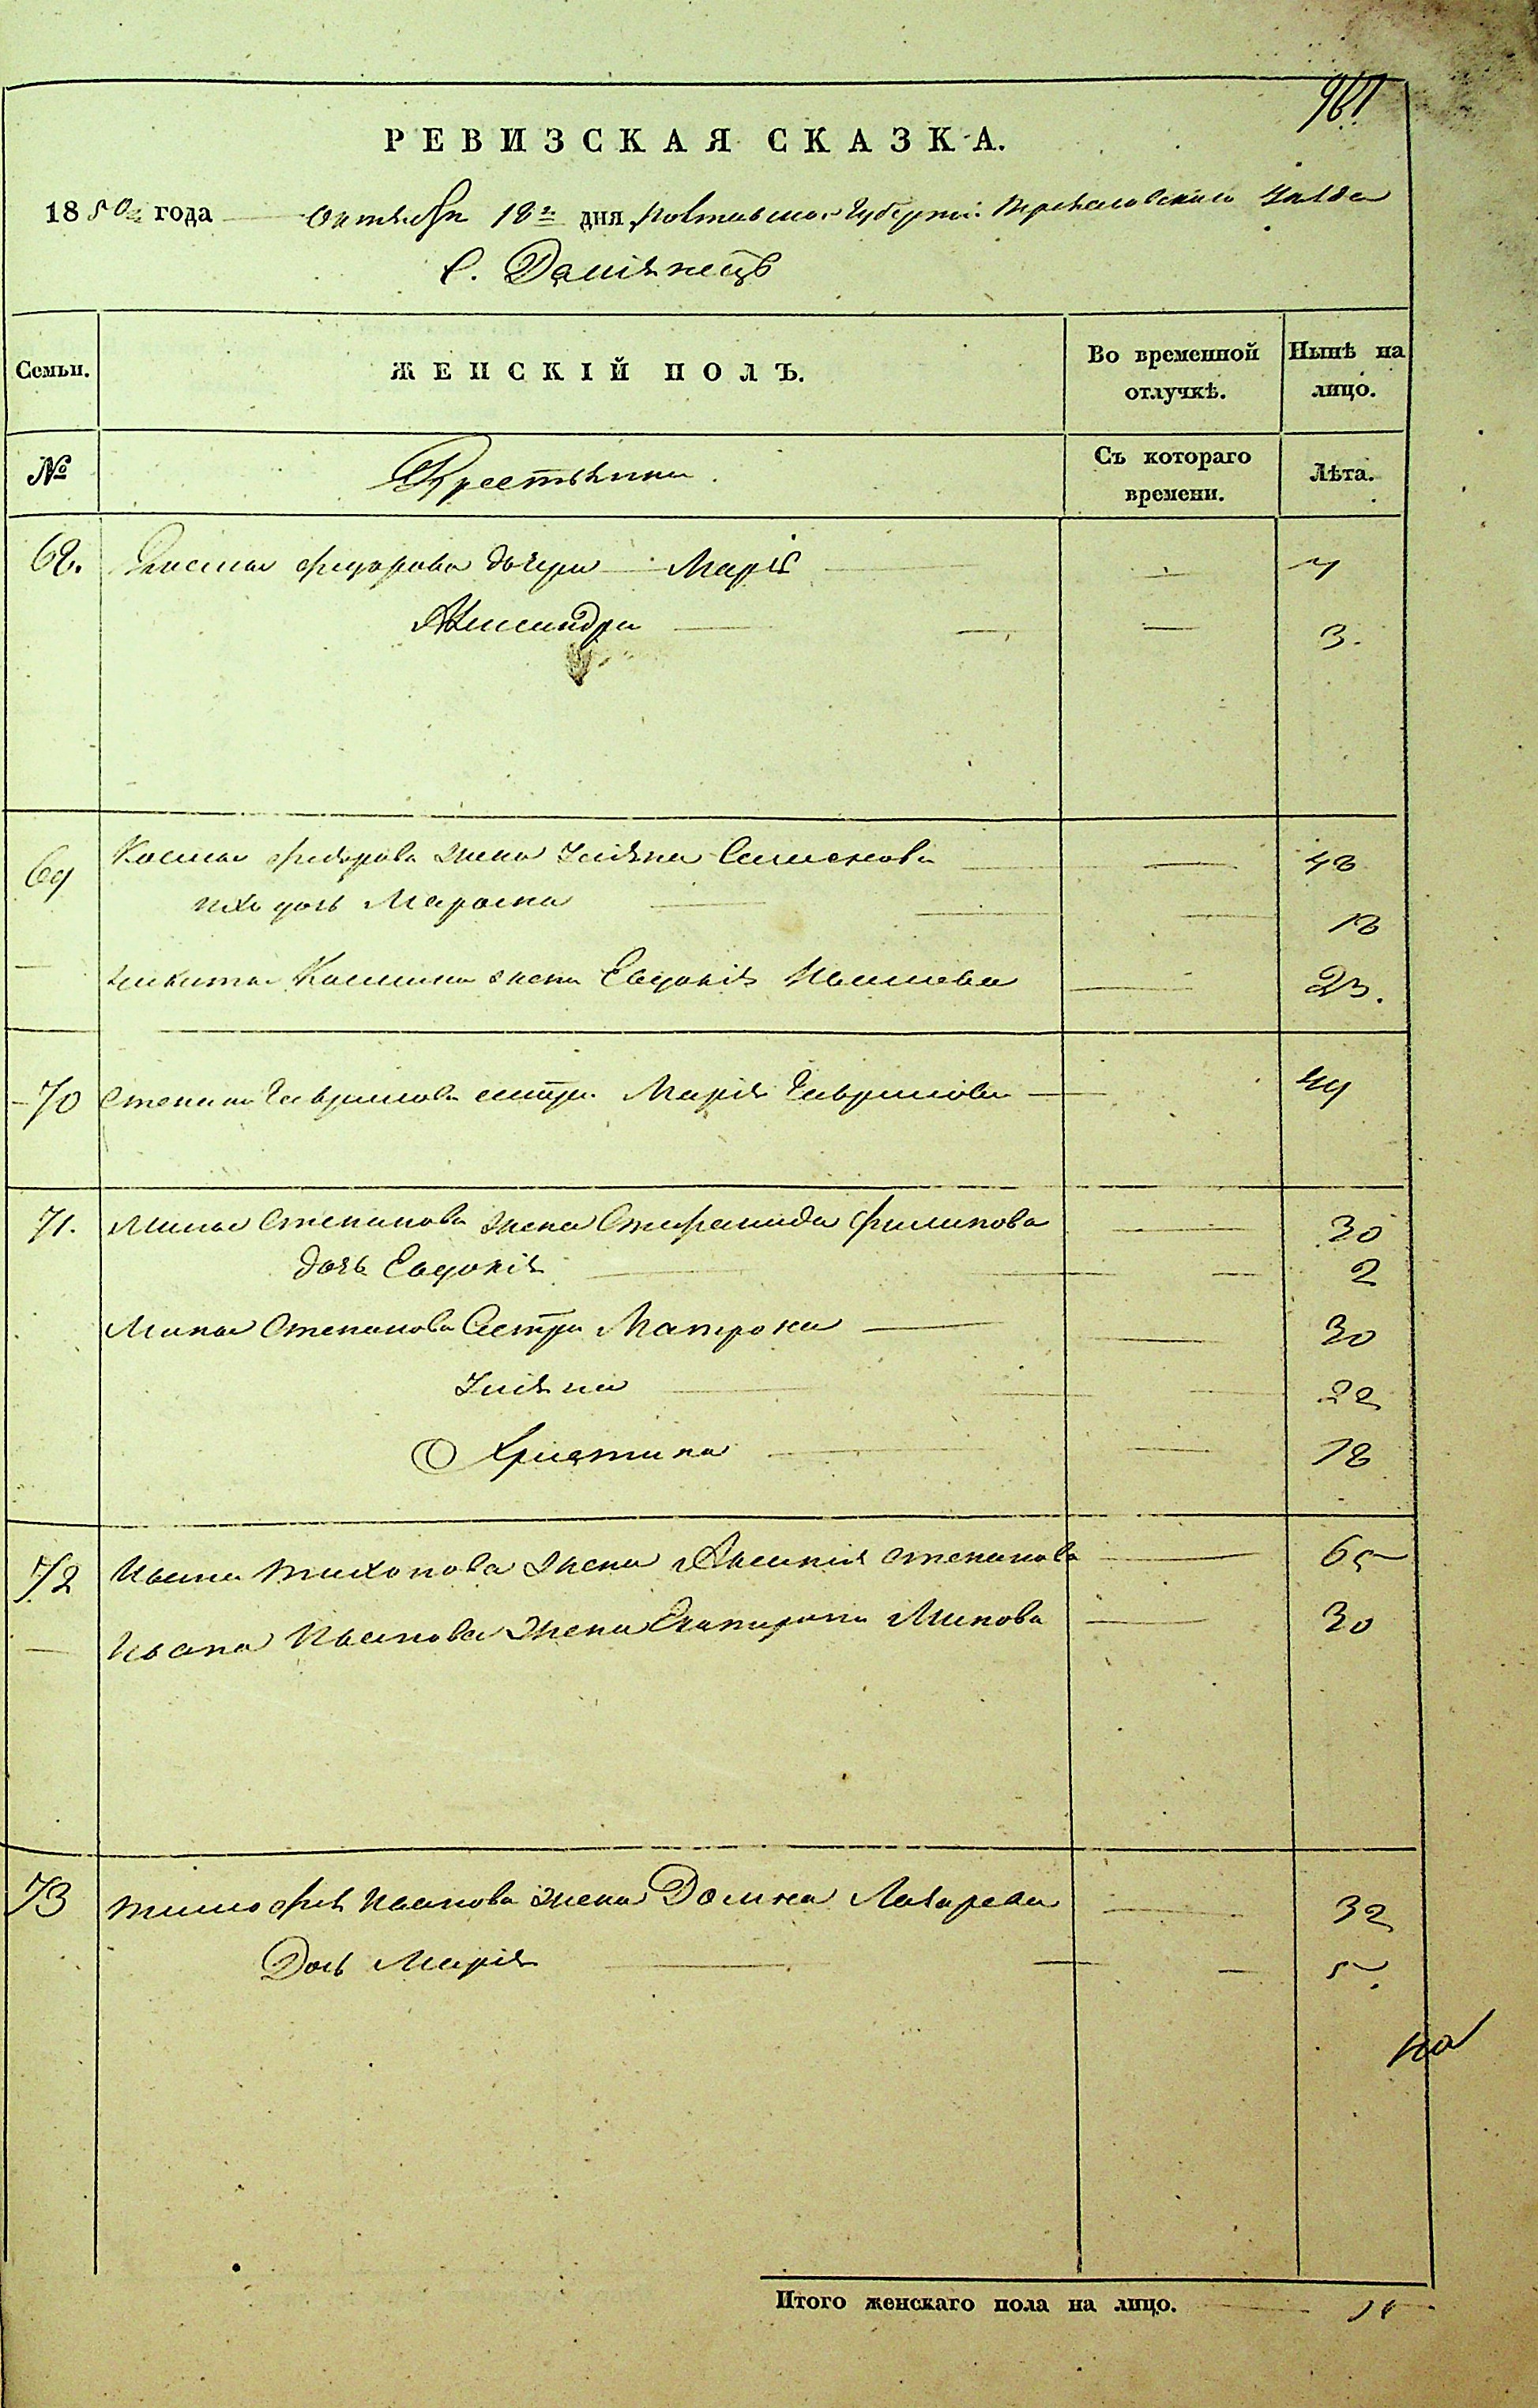 961
РЕВИЗСКАЯ СКАЗКА.
1850 года Октября 18 дня Полтавской Губернии Переяславского уезда
С. Демянецъ
Семьи. ЖЕНСКІЙ ПОЛЪ. Во временной отлучкѣ. Нынѣ на лицо.
№ Крестьяни Съ котораго времени. Лѣта.
68. Федорова дочери Марія 7
Александра 3.
69 Косма Федорова жена Уліяна Семенова 48
ихъ дочь Марфа 18
Никита Космина жена Евдокія Иванова 23.
70 Степана Гаврилова сестра Марія Гаврилова 44
71. Мины Степанова жена Степанида Филипова 30
дочь Евдокія 2
Мины Степанова Сестра Матрона 30
Уліяна 22
Христина 18
72 Ивана Тихонова жена Аксинія Степанова 65
Ивана Иванова жена Екатерина Минова 30
73 Тимофея Иванова жена Домна Лазарева 32
Дочь Марія 5
на
Итого женскаго пола на лицо. 15